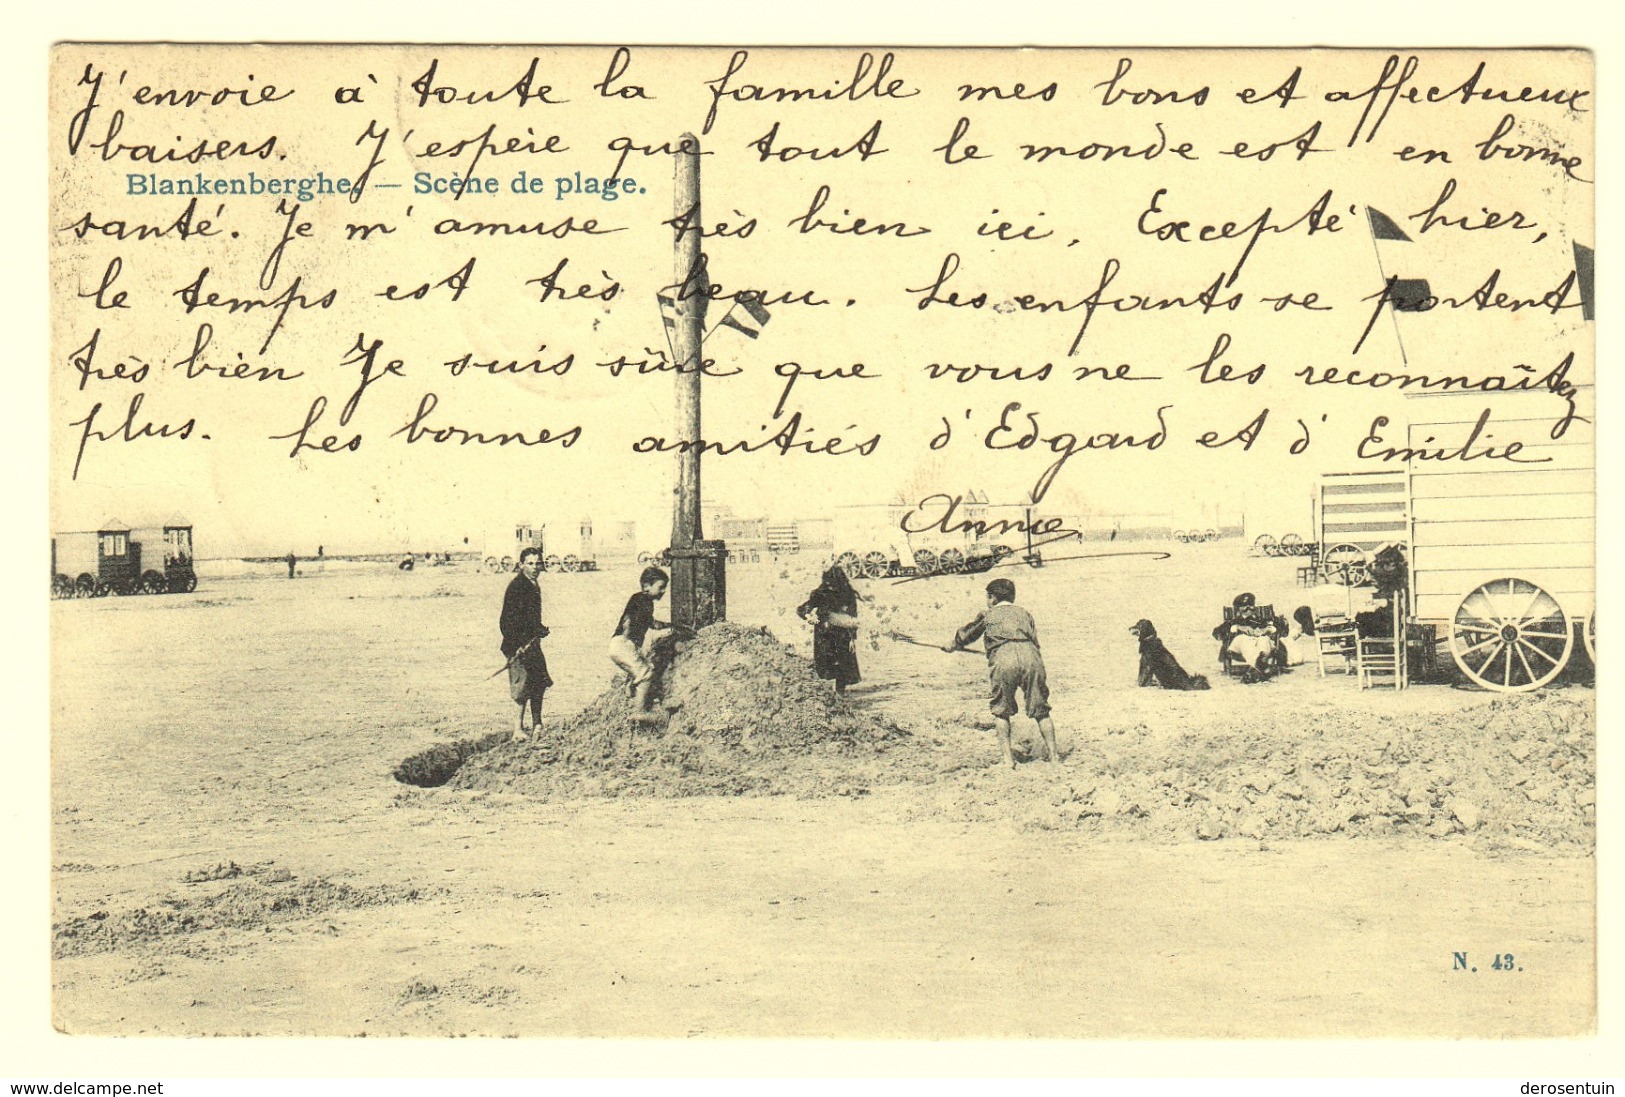 J'envoie à toute la famille mes bons et affectueux
baisers. J'espère que tout le monde est en bonne
Blankenberghe. — Scène de plage.
santé. Je m'amuse très bien ici. Excepté hier,
le temps est très beau. Les enfants se portent
très bien Je suis sûre que vous ne les reconnaîtez
plus. Les bonnes amitiés d'Edgard et d'Emilie
Annie
N. 43.
www.delcampe.net
derosentuin